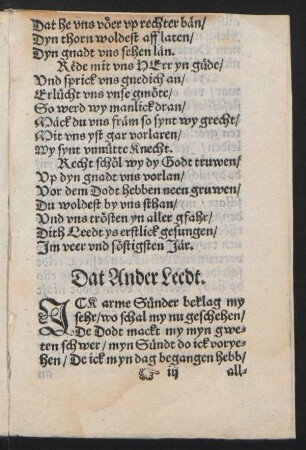 Dat he vns vöer vp rechter bān/
Dyn thorn woldest aff laten/
Dyn gnadt vns sehen lān.
Rēde mit vns HErr yn güde/
Vnd sprick vns gnedich an/
Erlücht vns vnse gmöte/
So werd wy manlick dran/
Mack du vns frām so synt wy grecht/
Mit vns yst gar vorlaren/
Wy synt vnnütte Knecht.
Recht schöl wy dy Godt truwen/
Vp dyn gnadt vns vorlan/
Vor dem Dodt hebben neen gruwen/
Du woldest by vns sthan/
Vnd vns trösten yn aller gfahr/
Dith Leedt ys erstlick gesungen/
Im veer vnd söstigsten Jār.
Dat Ander Leedt.
ICK arme Sünder beklag my
sehr/ wo schal my nu geschehen/
De Dodt mackt my myn gwe-
ten schwer/ myn Sündt do ick vorye-
hen/ De ick myn dag begangen hebb/
iij all-